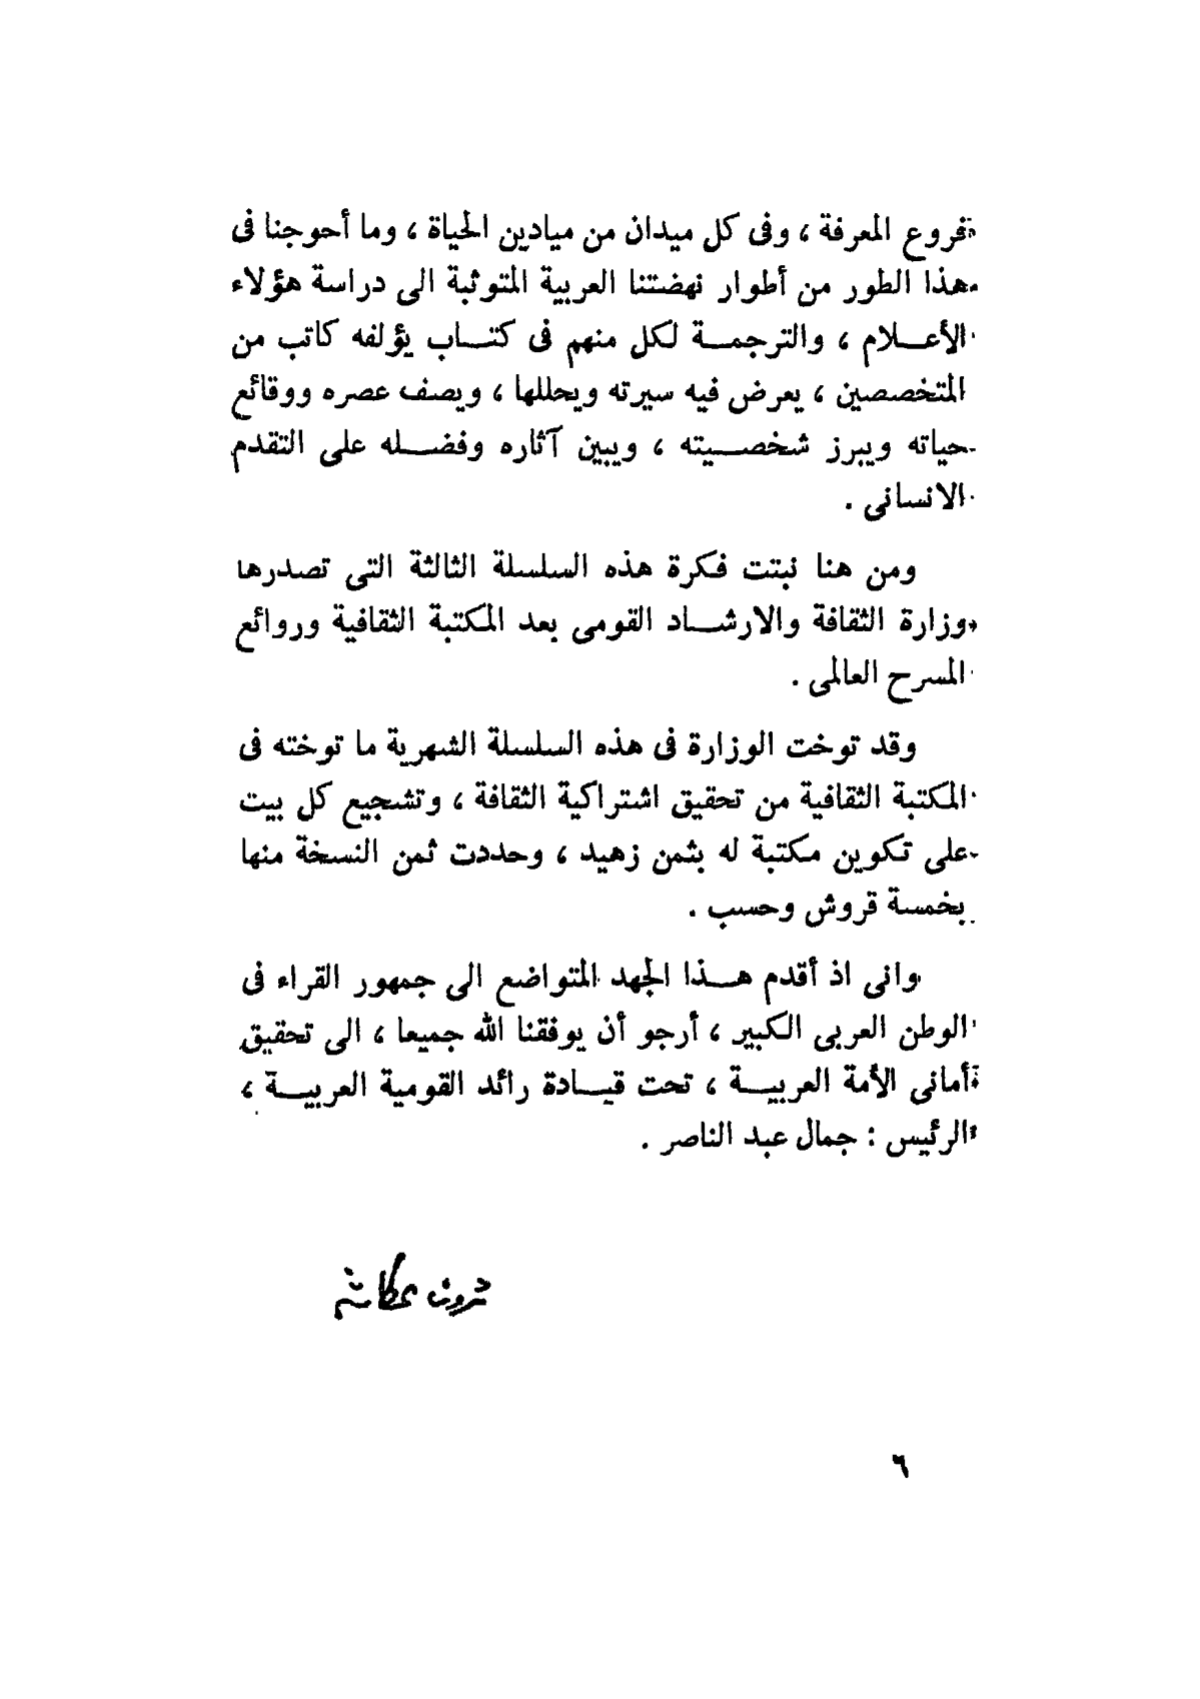 فروع المعرفة ، وفى كل ميدان من ميادين الحياة ، وما أحوجنا فى
هذا الطور من أطوار نهضتنا العربية المتوثبة الى دراسة هؤلاء
الأعـــلام ، والترجمـــة لكل منهم فى كتـــاب يؤلفه كاتب من
المتخصصين ، يعرض فيه سيرته ويحللها ، ويصف عصره ووقائع
حياته ويبرز شخصـــيته ، ويبين آثاره وفضـــله على التقدم
الانسانى .
ومن هنا نبتت فكرة هذه السلسلة الثالثة التى تصدرها
وزارة الثقافة والارشـــاد القومى بعد المكتبة الثقافية وروائع
المسرح العالمى .
وقد توخت الوزارة فى هذه السلسلة الشهرية ما توخته فى
المكتبة الثقافية من تحقيق اشتراكية الثقافة ، وتشجيع كل بيت
على تكوين مكتبة له بثمن زهيد ، وحددت ثمن النسخة منها
بخمسة قروش وحسب .
وانى اذ أقدم هـــذا الجهد المتواضع الى جمهور القراء فى
الوطن العربى الكبير ، أرجو أن يوفقنا الله جميعا ، الى تحقيق
أمانى الأمة العربيـــة ، تحت قيـــادة رائد القومية العربيـــة ،
الرئيس : جمال عبد الناصر .
ثروت عكاشه
٦